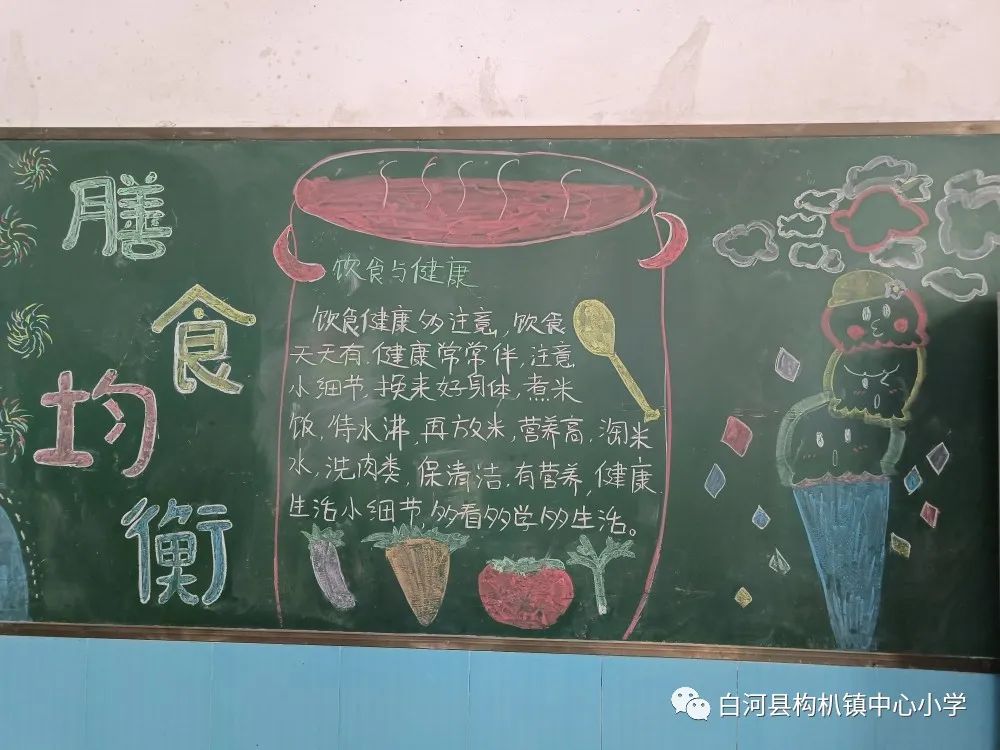 膳
食
均
衡
饮食与健康
饮食健康多注意,饮食
天天有.健康常常伴,注意
小细节,换来好身体,煮米
饭,待水沸,再放米,营养高,淘米
水,洗肉类,保清洁.有营养,健康
生活小细节,多看多学多生活。
白河县构朳镇中心小学